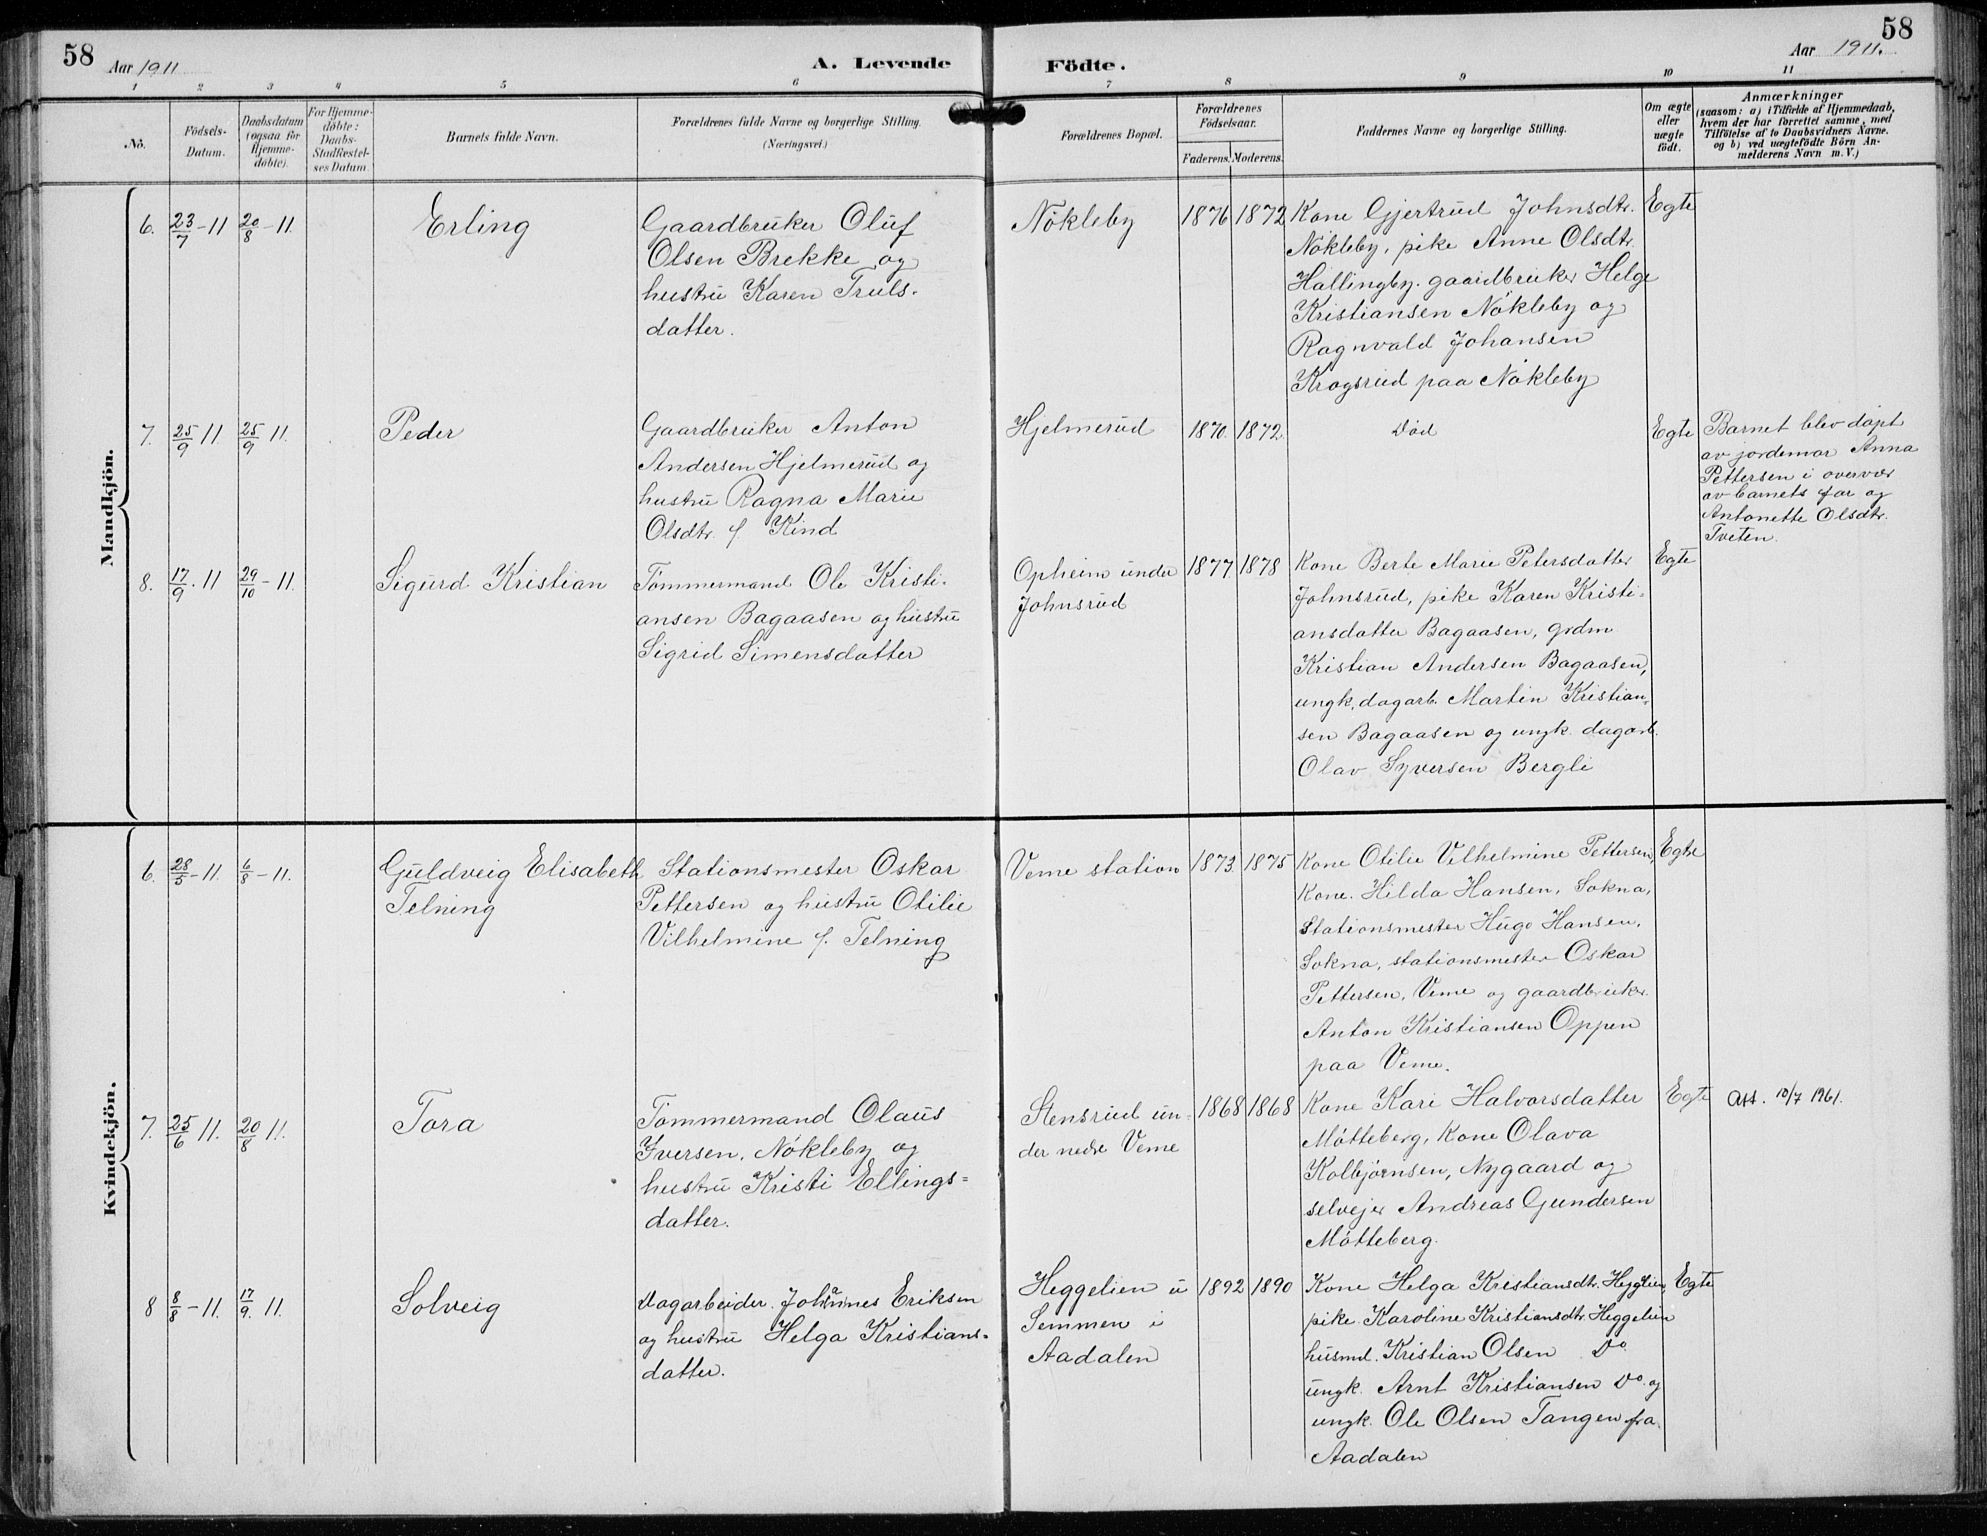 58
Aar 1911
A. Levende
Födte.
Aar 1911.
58
1 2 3 4 5 6 7 8 9 10 11
No.
Födsels-
Datum.
Daabsdatum
(ogsaa for
Hjemme-
döbte).
For Hjemme-
döbte:
Daabs-
Stadfæstel-
ses Datum.
Barnets fulde Navn.
Forældrenes fulde Navne og borgerlige Stilling.
(Næringsvei.)
Forældrenes Bopæl.
Forældrenes
Födselsaar.
Faderens. Moderens.
Faddernes Navne og borgerlige Stilling.
Om ægte
eller
uægte
födt.
Anmærkninger
(saasom: a) i Tilfælde af Hjemmedaab,
hvem der har forrettet samme, med
Tilföielse af to Daabsvidners Navne.
og b) ved uægtefödte Börn An-
melderens Navn m. V.)
Mandkjön.
6. 23/7 - 11 20/8 - 11.
Erling
Gaardbruker Oluf
Olsen Brekke og
hustru Karen Truls-
datter.
Nökleby
1876 1872
Kone Gjertrud Johnsdtr.
Nökleby, pike Anne Olsdtr.
Hallingby. gaardbruker Helge
Kristiansen Nökleby og
Ragnvald Johansen
Krogsrud paa Nökleby
Egte
7. 25/9 11 25/9 11.
Peder
Gaardbruker Anton
Andersen Hjelmerud og
hustru Ragna Marie
Olsdtr. f. Kind
Hjelmerud
1870. 1872.
Död
Egte
Barnet blev döpt
av jordemor Anna
Pettersen i overvær
av barnets far og
Antonette Olsdtr.
Tveten.
8. 17/9 . 11 29/10 - 11.
Sigurd Kristian
Tömmermand Ole Kristi-
ansen Bagaasen og hustru
Sigrid Simensdatter
Opheim under
Johnsrud
1877 1878
Kone Berte Marie Petersdatter
Johnsrud, pike Karen Kristi-
ansdatter Bagaasen, grdm
Kristian Andersen Bagaasen,
ungk. dagarb. Martin Kristian-
sen Bagaasen og ungk. dagarb.
Olav Syversen Bergli
Egte
Kvindekjön.
6. 28/5 - 11. 6/8 - 11.
Guldveig Elisabeth
Telning
Stationsmester Oskar
Pettersen og hustru Otilie
Vilhelmine f. Telning
Veme station
1873. 1875
Kone Otilie Vilhelmine Pettersen,
Kone. Hilda Hansen, Sokna,
Stationsmester Hugo Hansen,
Sokna, stationsmester Oskar
Pettersen, Veme og gaardbruker
Anton Kristiansen Oppen
paa Veme.
Egte
7. 25/6 11. 20/8 11.
Tora
Tömmermand Olaus
Iversen, Nökleby og
hustru Kristi Ellings-
datter.
Stensrud un-
der nedre Veme
1868 1868
Kone Kari Halvorsdatter
Mötteberg, Kone Olava
Kolbjörnsen, Nygaard og
selvejer Andreas Gundersen
Mötteberg.
Egte
Att. 10/7 1961.
8 8/8 - 11. 17/9. 11.
Solveig
Dagarbeider. Johannes Eriksen
og hustru Helga Kristians-
datter.
Heggelien u
Semmen i
Aadalen
1892 1890
Kone Helga Kristiansdtr. Heggelien,
pike. Karoline Kristiansdtr. Heggelien
husmd. Kristian Olsen Do.
ungk. Arnt Kristiansen Do. og
ungk. Ole Olsen Tangen fra
Aadalen
Egte